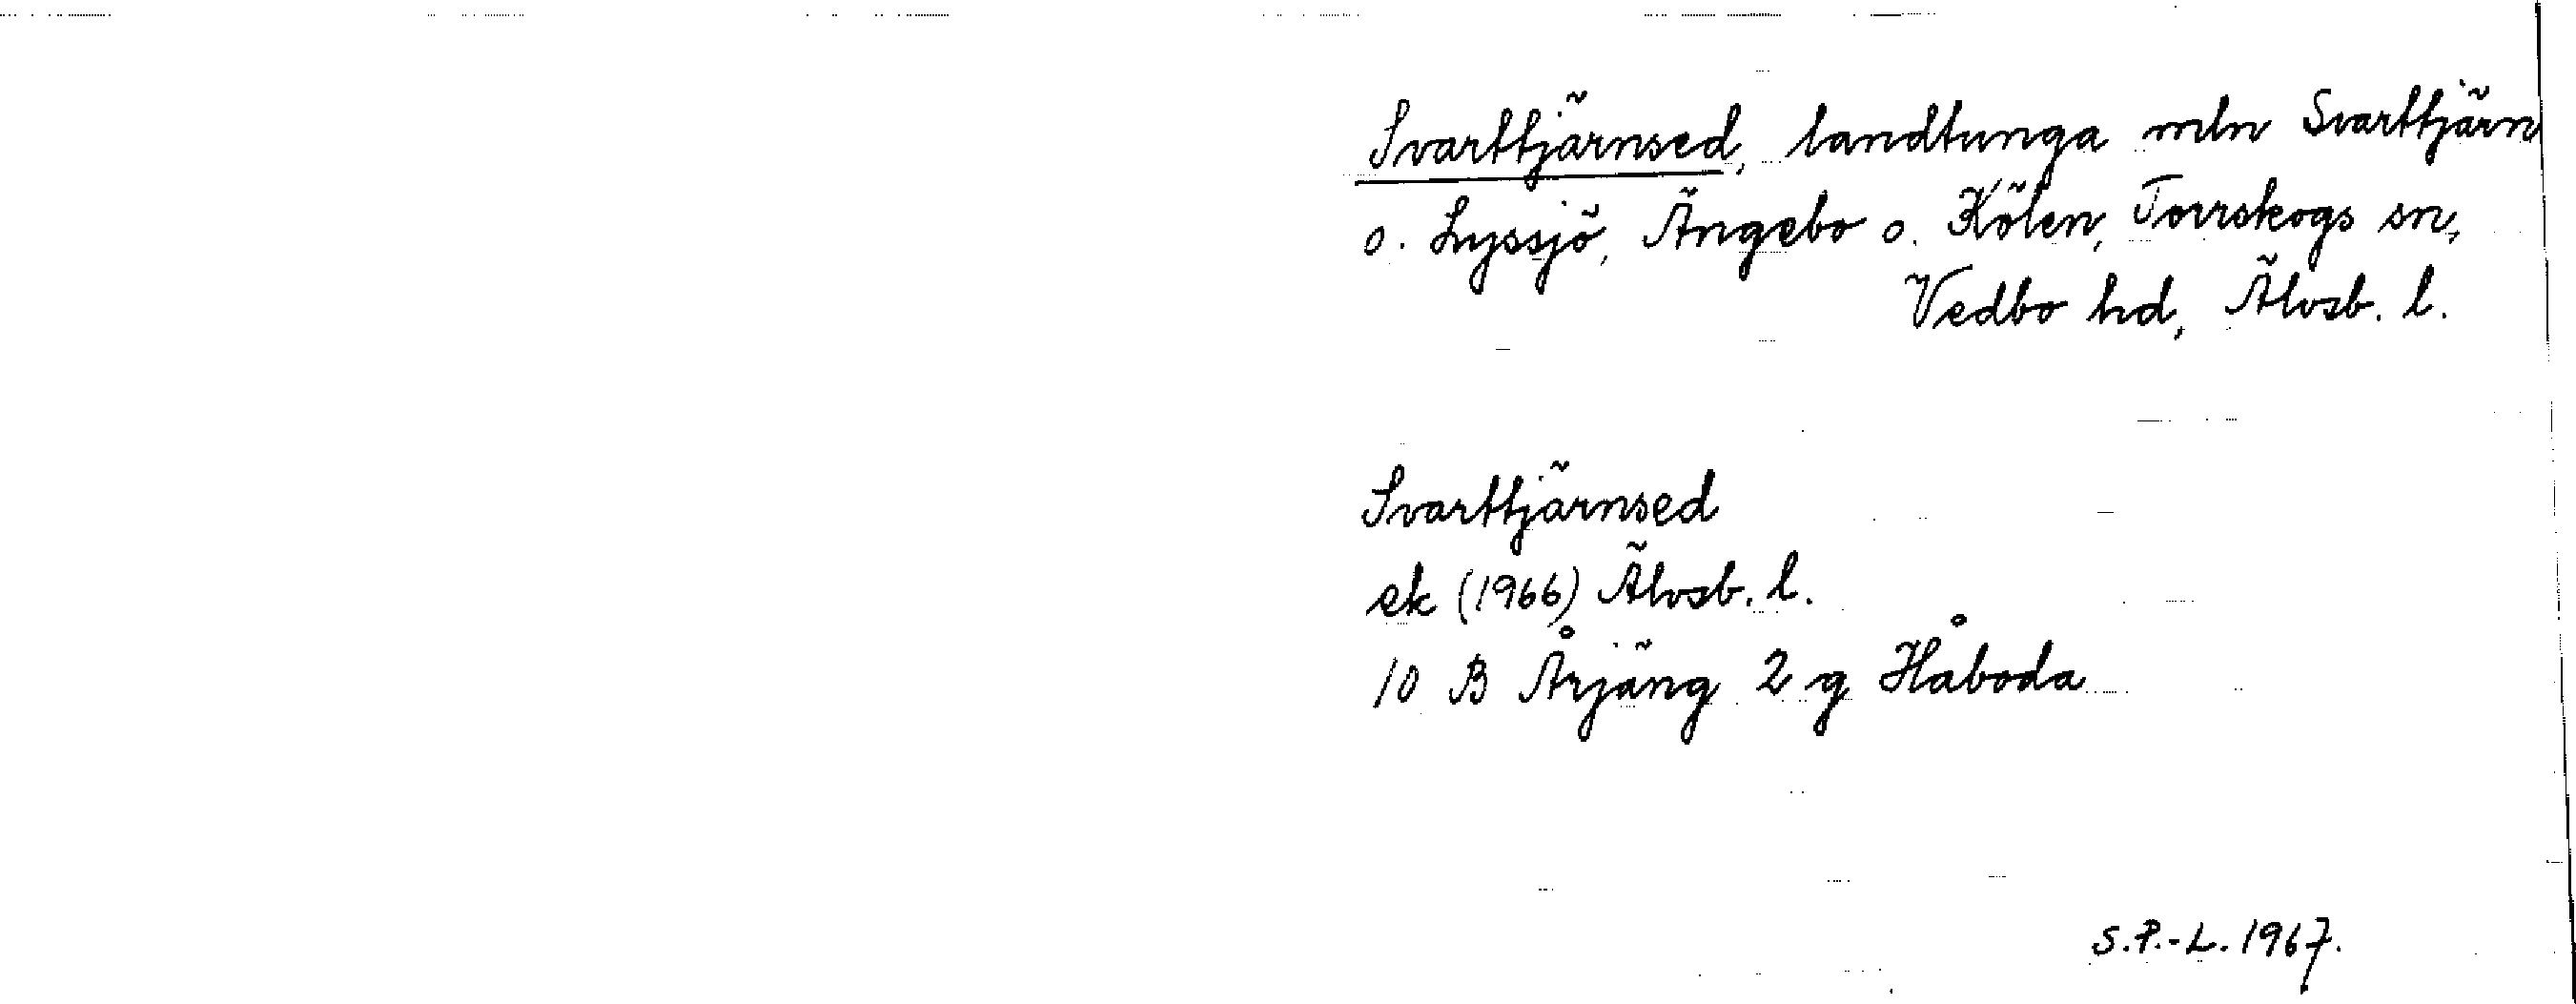 Svarttjärnsed, landtunga mln Svarttjärn
o. Lyssjö, Ängebo o. Kölen, Torrskogs sn,
Vedbo hd, Älvsb. l.
Svarttjärnsed
ek (1966) Älvsb. l.
10 B Årjäng 2 g Håboda
S.P.-L. 1967.